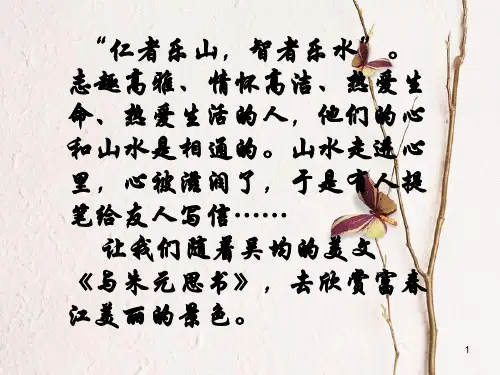 “仁者乐山，智者乐水”。
志趣高雅、情怀高洁、热爱生
命、热爱生活的人，他们的心
和山水是相通的。山水走进心
里，心被滋润了，于是有人提
笔给友人写信……
让我们随着吴均的美文
《与朱元思书》，去欣赏富春
江美丽的景色。
1